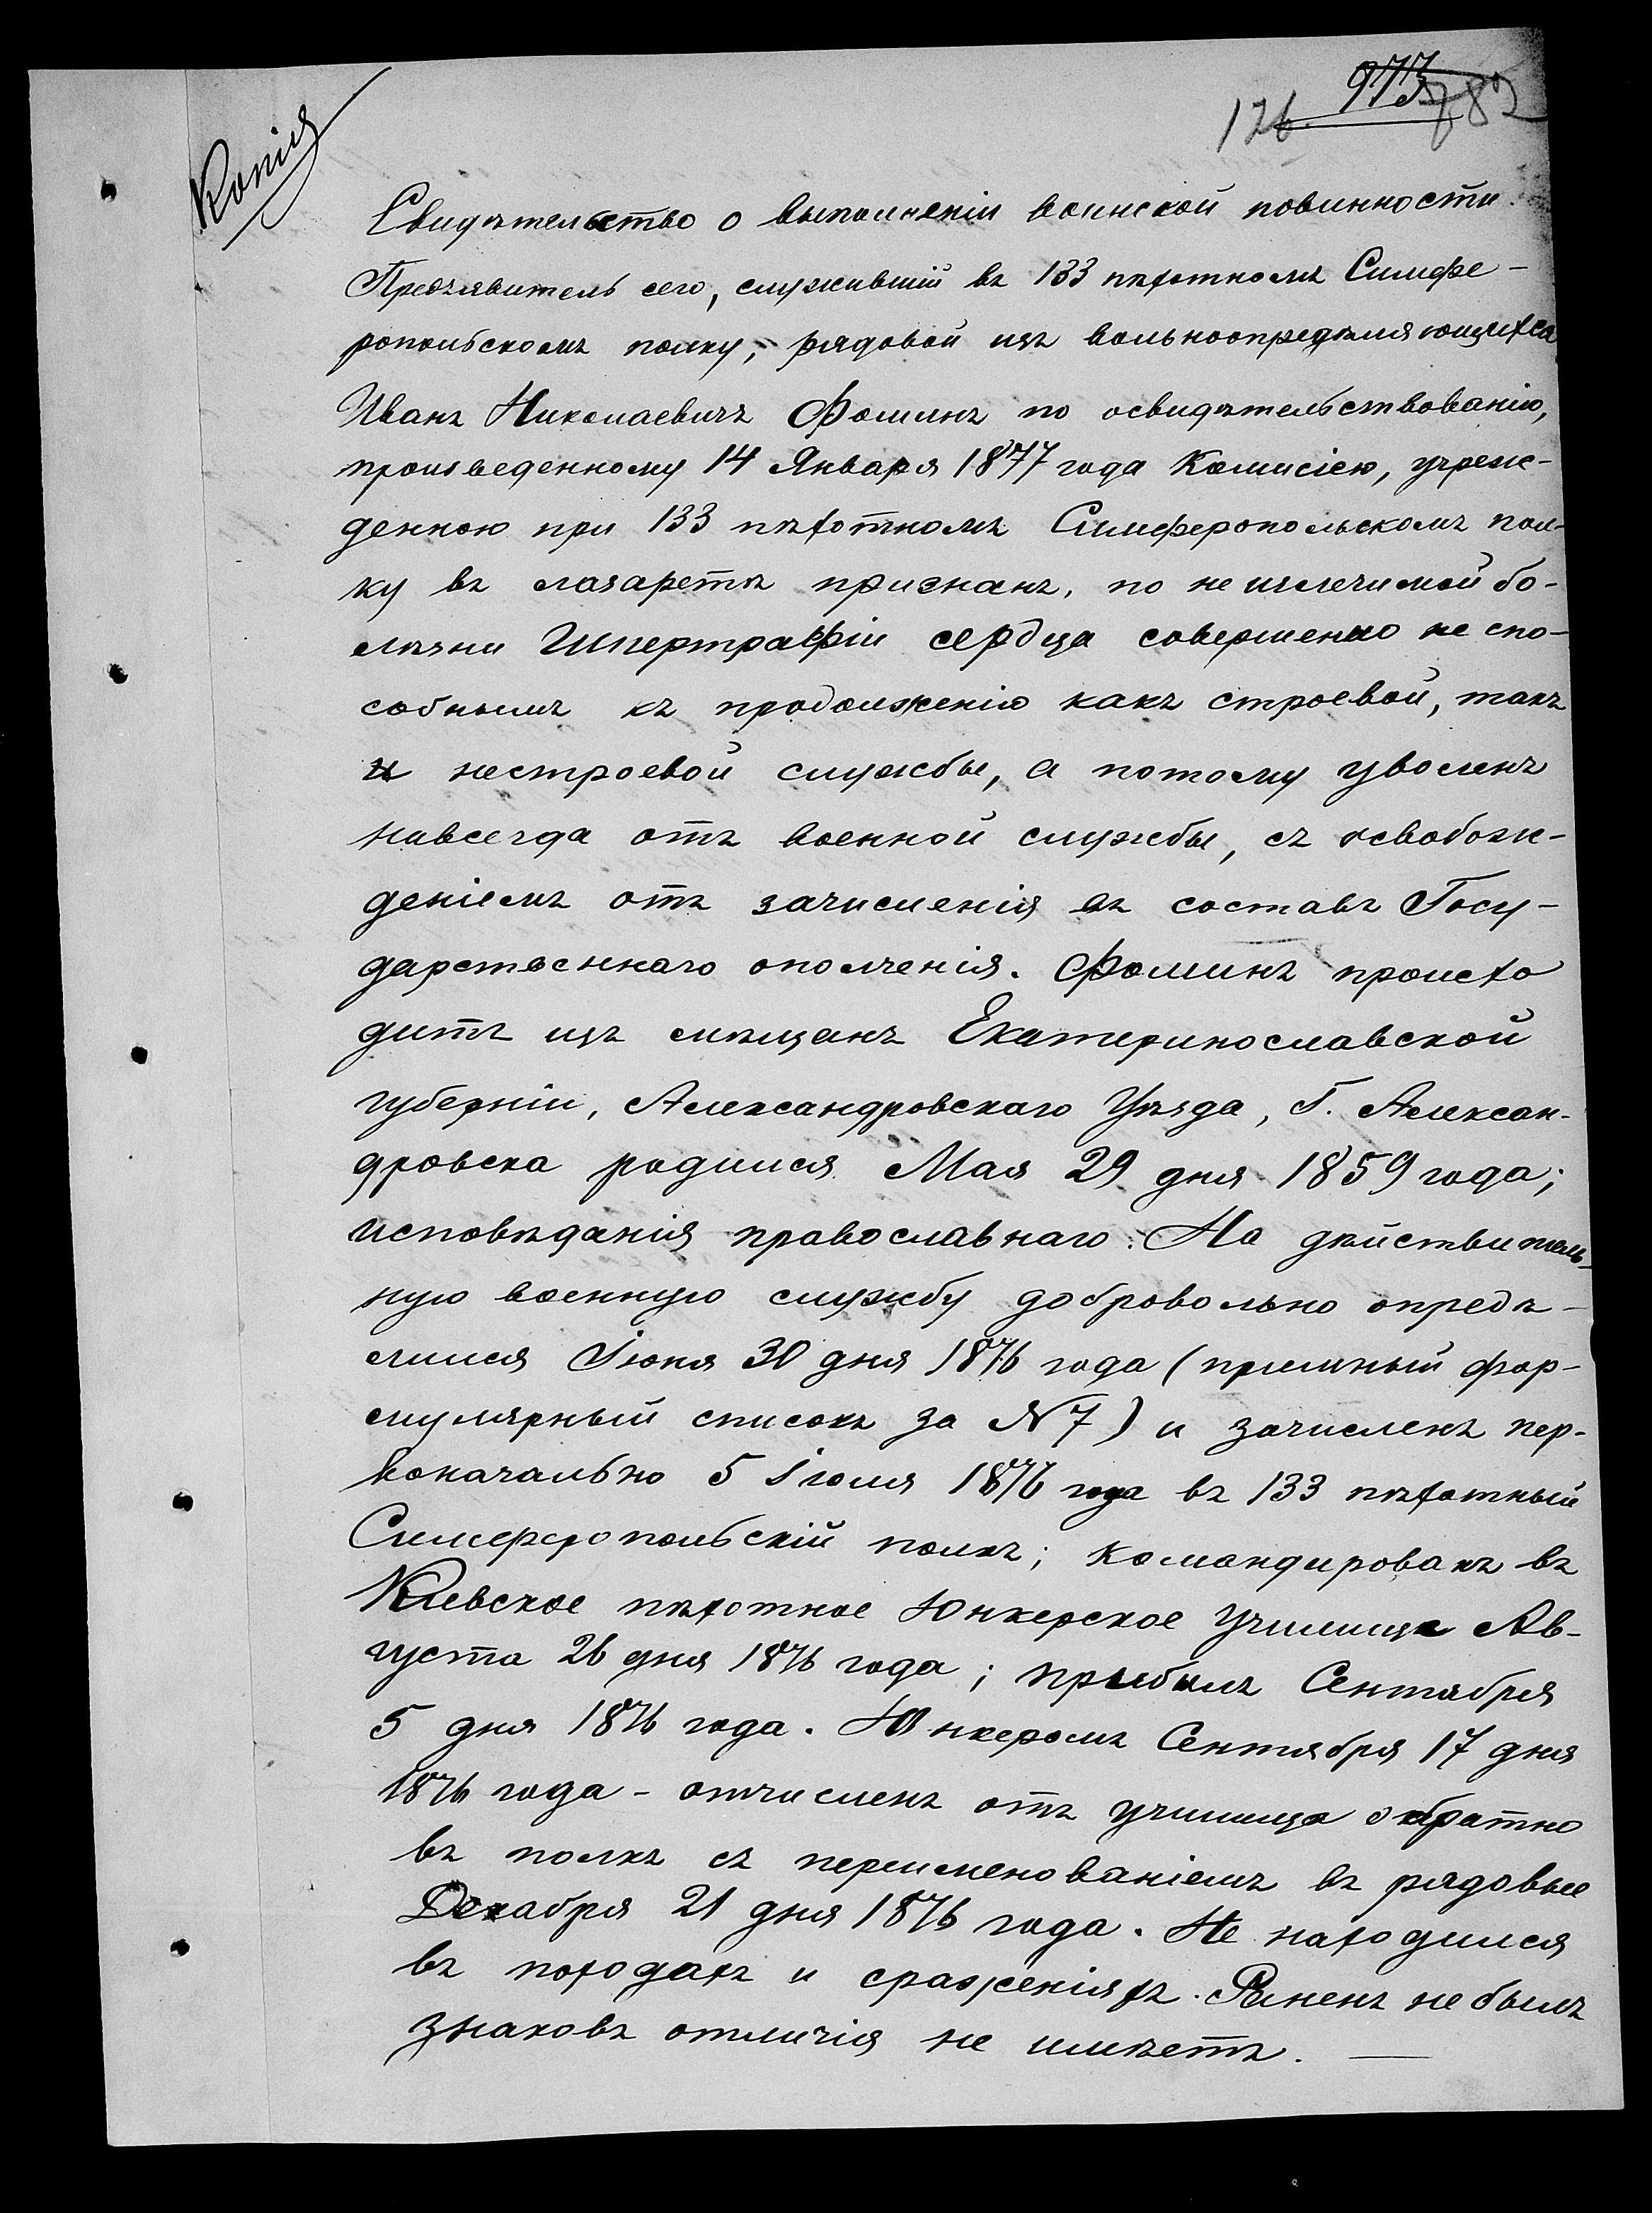 Копія
973
126. 782
Свидѣтельство о выполненіи воинской повинности.
Предъявитель сего, служившій въ 133 пѣхотномъ Симфе-
ропольскомъ полку, рядовой изъ вольноопредѣляющихся
Иванъ Николаевичъ Фоминъ по освидѣтельствованію,
произведенному 14 Января 1877 года Комисіею, учреж-
денною при 133 пѣхотномъ Симферопольскомъ пол-
ку въ лазаретѣ признанъ, по неизлечимой бо-
лѣзни Гипертрафіи сердца совершенно не спо-
собнымъ къ продолженію какъ строевой, такъ
и нестроевой службы, а потому уволенъ
навсегда отъ военной службы, съ освобож-
деніемъ отъ зачисленія въ составъ Госу-
дарственнаго ополченія. Фоминъ происхо
дитъ изъ мѣщанъ Екатеринославской
губерніи, Александровскаго Уѣзда, Г. Алексан-
дровска родился Мая 29 дня 1859 года;
исповѣданія православнаго. На дѣйствитель-
ную военную службу добровольно опредѣ-
лился Іюня 30 дня 1876 года (пріемный фор-
мулярный списокъ за N 7) и зачисленъ пер-
воначально 5 Іюля 1876 года въ 133 пѣхотный
Симферопольскій полкъ; командированъ въ
Кіевское пѣхотное Юнкерское Училище Ав-
густа 26 дня 1876 года; прибылъ Сентября
5 дня 1876 года. Юнкеромъ Сентября 17 дня
1876 года - отчисленъ отъ училища обратно
въ полкъ съ переименованіемъ въ рядовые
Декабря 21 дня 1876 года. Не находился
въ походахъ и сраженіяхъ. Раненъ не былъ
знаковъ отличія не имѣетъ. —